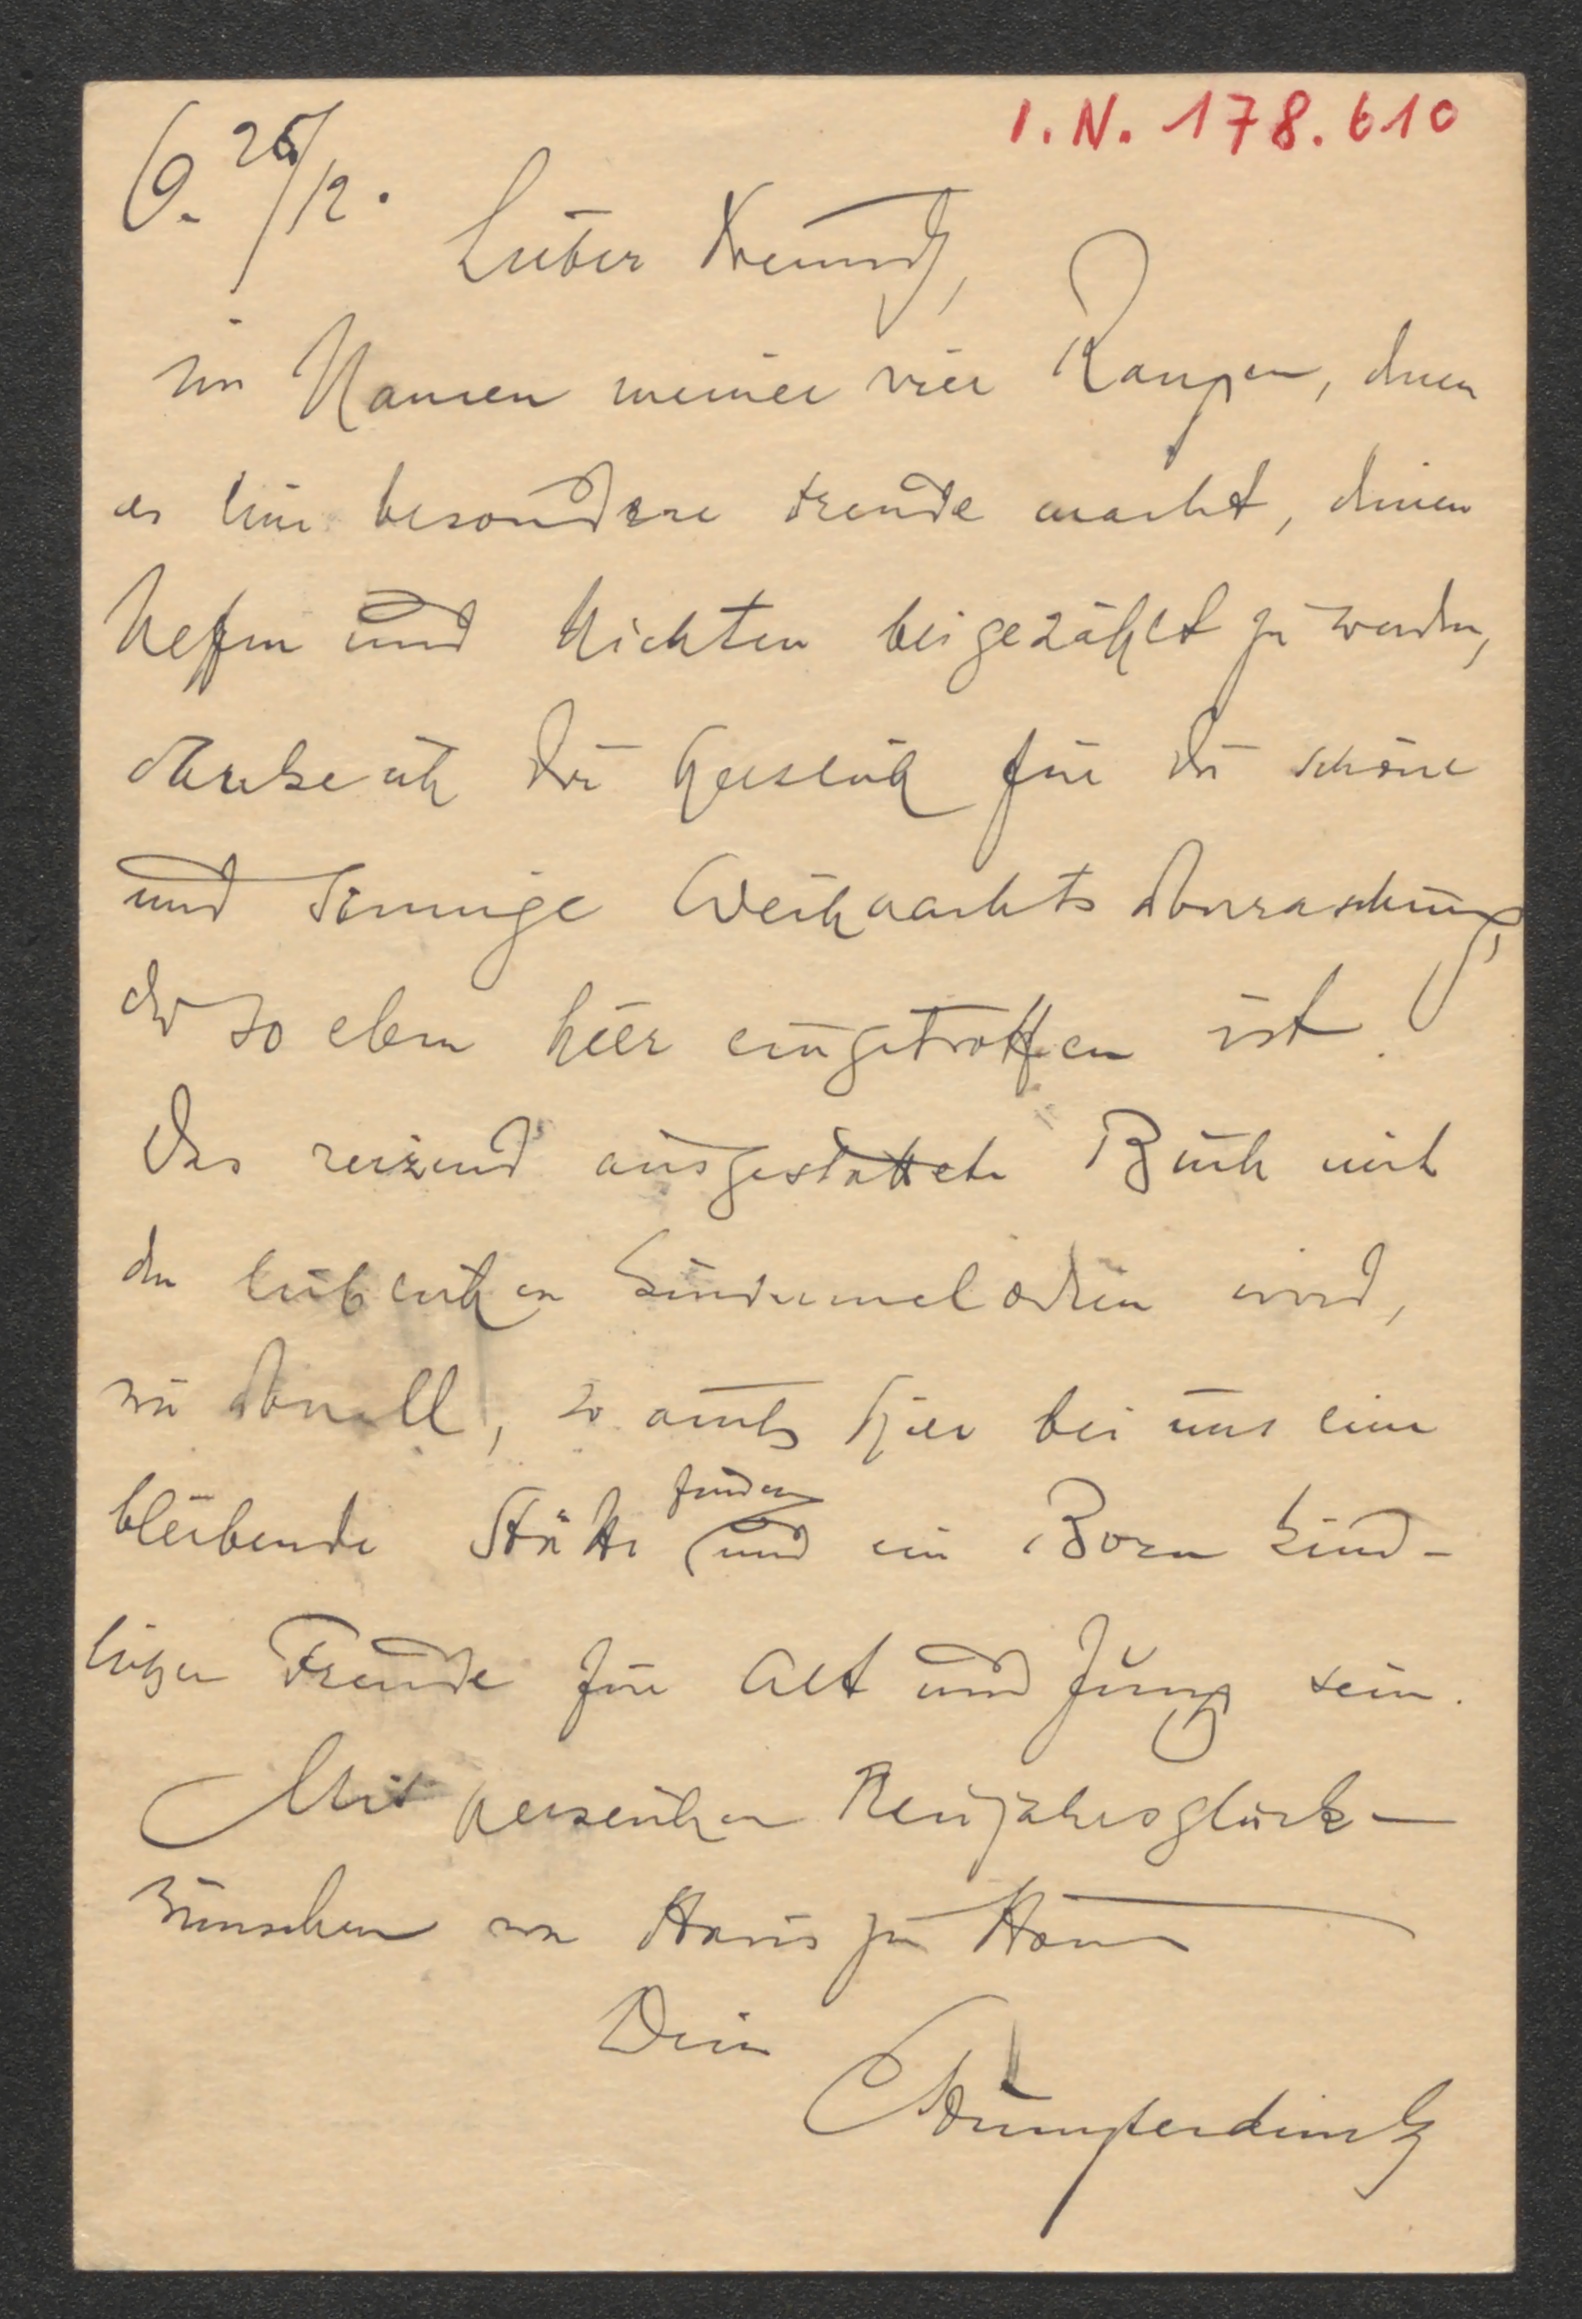 I. N. 178.610
B. 26/12.
Lieber Freund,
im Namen meiner vier Rangen, denen
es eine besondere Freude macht, deinen
Neffen und Nichten beigezählt zu werden,
danke ich dir herzlich für die schöne
und sinnige Weihnachtsüberraschung,
die so eben hier eingetroffen ist.
Das reizend ausgestattete Buch mit
den lieblichen Kindermelodien wird,
wie überall, so auch hier bei uns eine
bleibende Stätte finden und ein Born kind-
licher Freude für Alt und Jung sein.
Mit herzlichen Neujahrsglück-
wünschen von Haus zu Haus
Dein
EHumperdinck